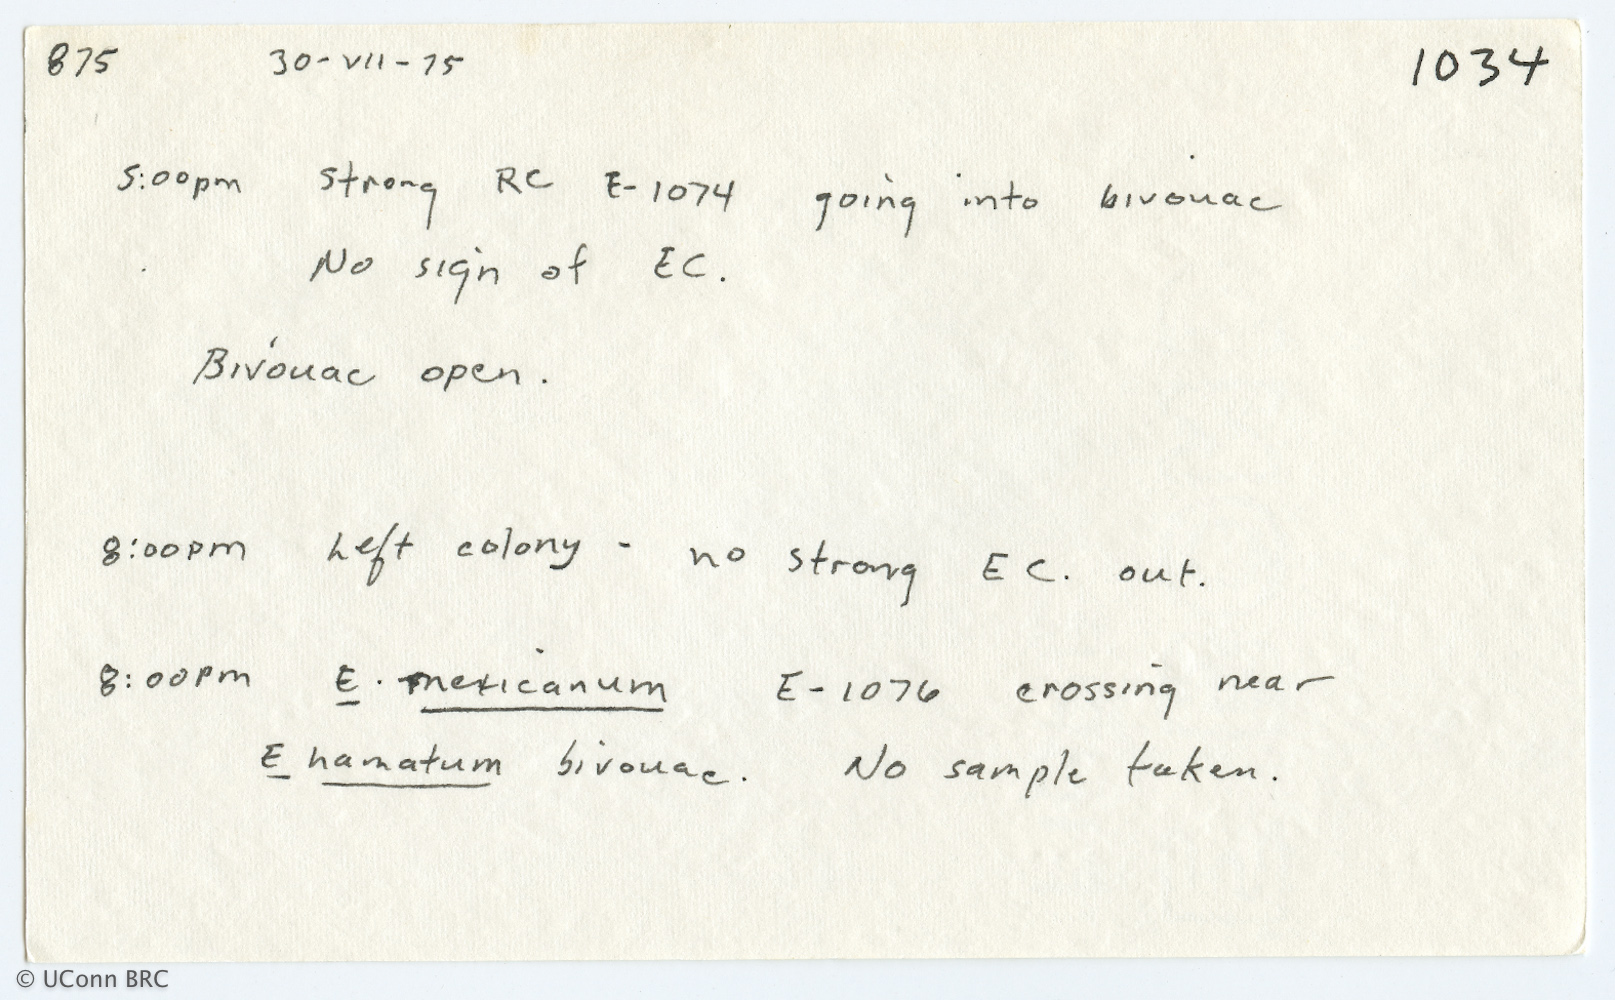 875 30-VII-75 1034
5:00pm strong RC E-1074 going into bivouac
No sign of EC.
Bivouac open.
8:00pm Left colony - no strong EC. out.
8:00pm E. mexicanum E-1076 crossing near
E hamatum bivouac. No sample taken.
© UConn BRC